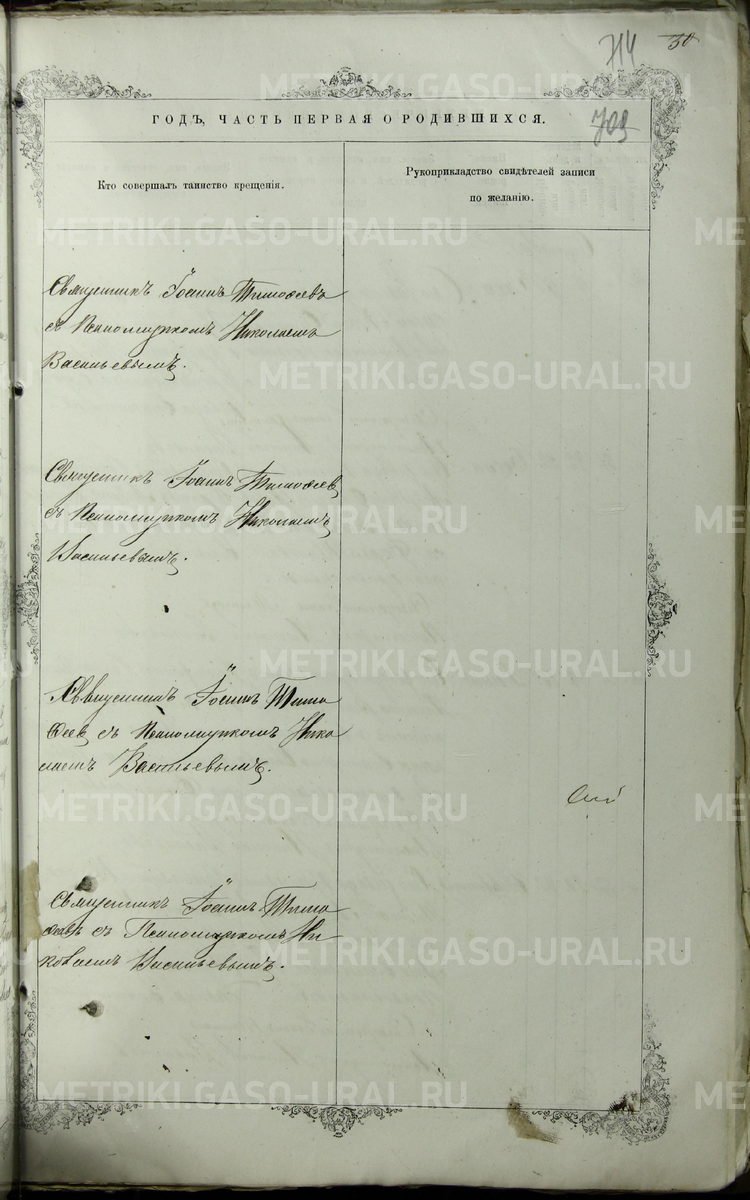 714 30
ГОДЪ, ЧАСТЬ ПЕРВАЯ О РОДИВШИХСЯ.
709
Кто совершалъ таинство крещенія.
Рукоприкладство свидѣтелей записи
по желанію.
Священникъ Іоаннъ Тимофеевъ
съ Псаломщикомъ Николаемъ
Васильевымъ.
Священникъ Іоаннъ Тимофеев
съ Псаломщикомъ Николаемъ
Васильевымъ.
Священникъ Іоаннъ Тимо
феев съ Псаломщикомъ Нико
лаемъ Васильевымъ.
Священникъ Іоаннъ Тимо
феевъ съ Псаломщикомъ Ни
колаемъ Васильевымъ.
METRIKI.GASO-URAL.RU